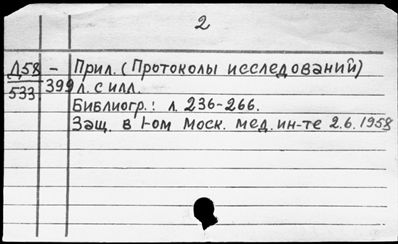 2
Д58 - Прил. (Протоколы исследований)
533 399 л. с илл.
Библиогр.: л. 236-266.
Защ. в I-ом Моск. мед. ин-те 2.6.1958